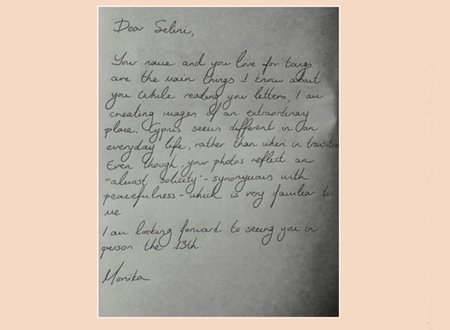 Dear Selini,
Your name and you love for tango
are the main things I know about
you. While reading you letters, I am
creating images of an extraordinary
place. Cyprus seems different in an
everyday life, rather than when in transition
Even though your photos reflect an
"almost solicity" - synonymous with
peacefulness - which is very familiar to
me
I am looking forward to seeing you in
person the 13th
Monika